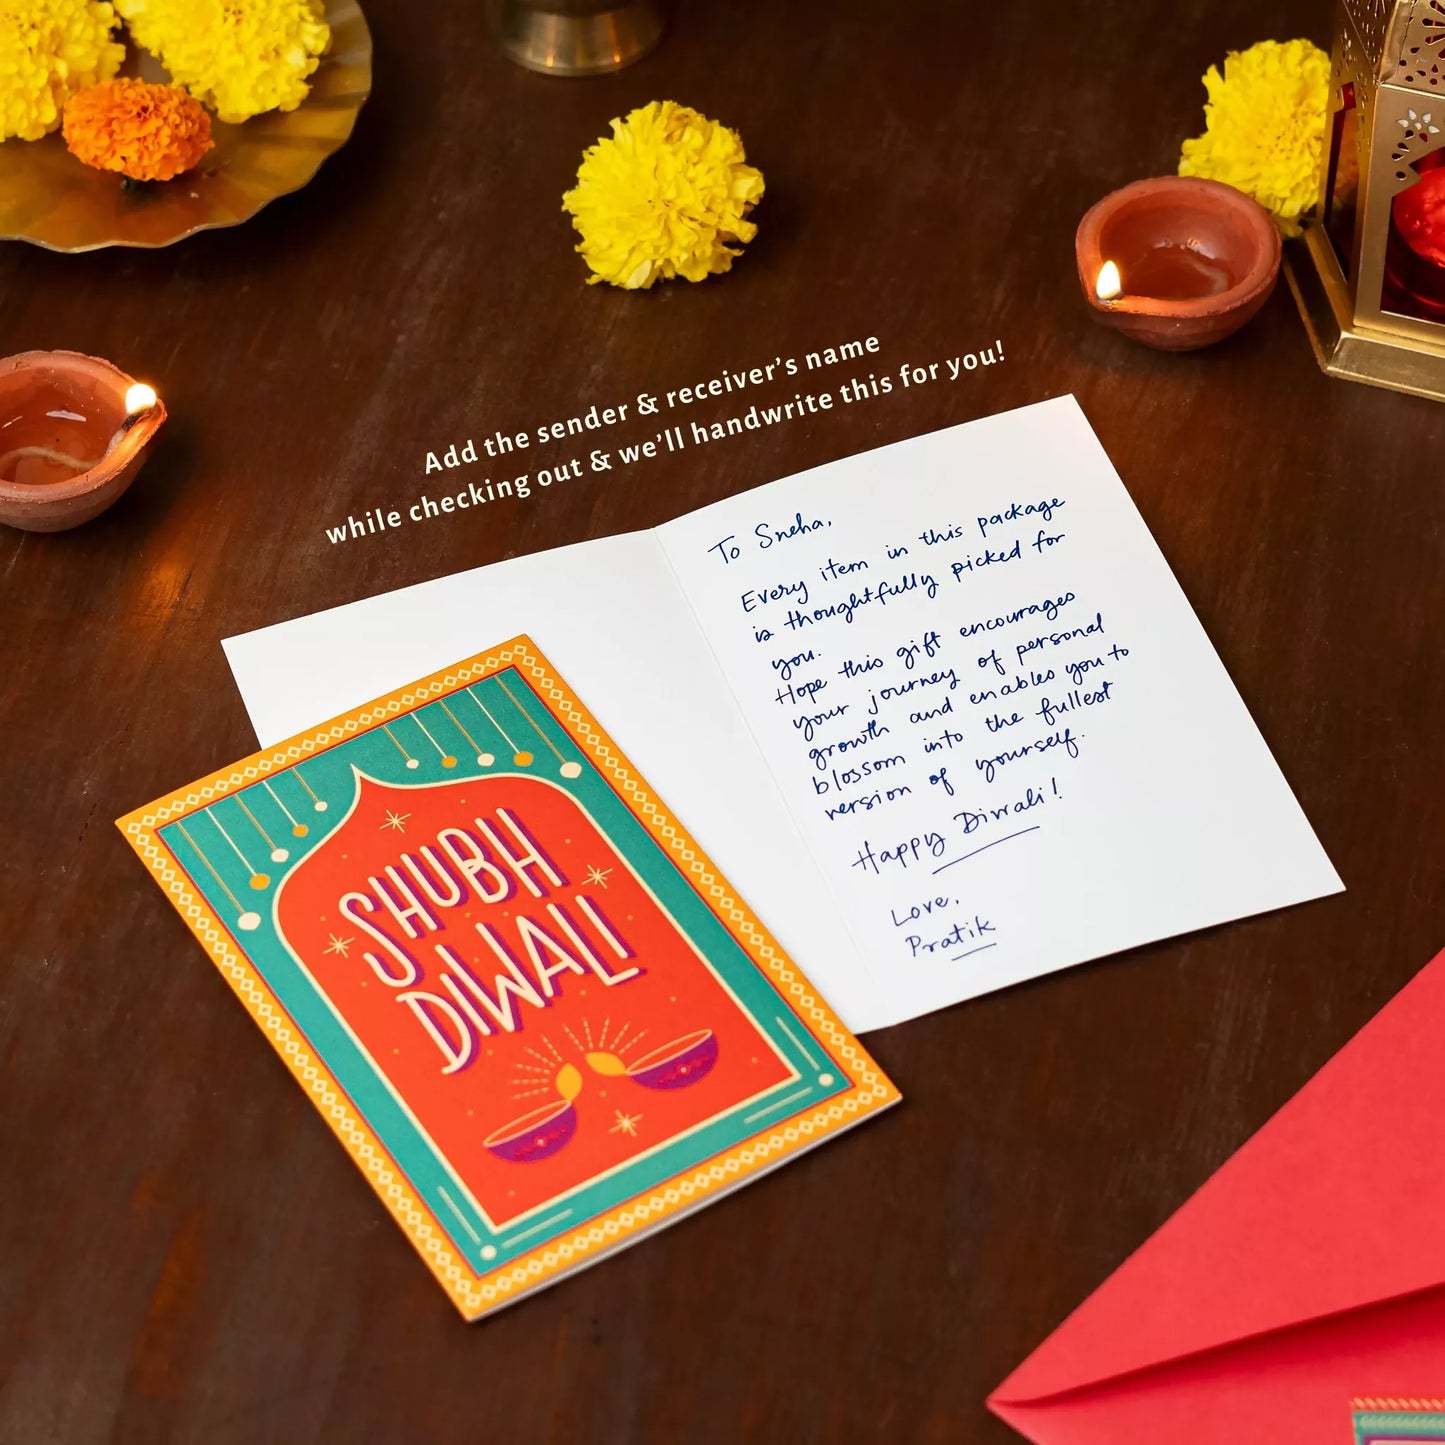 Add the sender & receiver's name
while checking out & we'll handwrite this for you!
To Sneha,
Every item in this package
is thoughtfully picked for
you.
Hope this gift encourages
your journey of personal
growth and enables you to
blossom into the fullest
version of yourself.
Happy Diwali!
Love,
Pratik
SHUBH
DIWALI